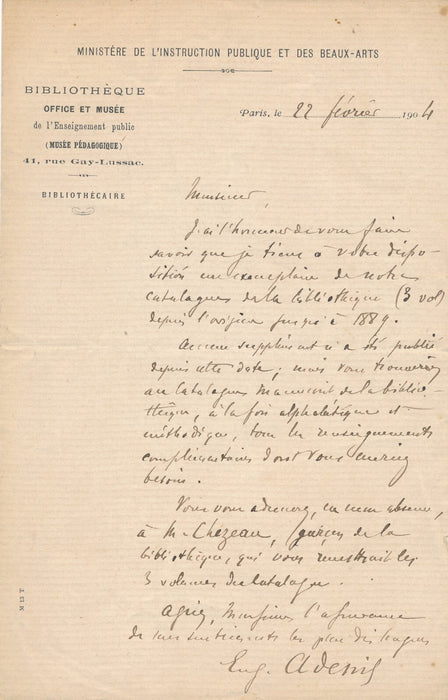 MINISTÈRE DE L'INSTRUCTION PUBLIQUE ET DES BEAUX-ARTS
BIBLIOTHÈQUE
OFFICE ET MUSÉE
de l'Enseignement public
(MUSÉE PÉDAGOGIQUE)
41, rue Gay-Lussac.
BIBLIOTHÉCAIRE
Paris, le 22 février 1904
Monsieur,
J'ai l'honneur de vous faire
savoir que je tiens à votre dispo-
sition un exemplaire de notre
catalogue de la bibliothèque (3 vol)
depuis l'origine jusqu'à 1889.
Aucun supplément n'a été publié
depuis cette date; mais vous trouverez
au catalogue manuscrit de la biblio-
thèque, à la fois alphabétique et
méthodique, tous les renseignements
complémentaires dont vous auriez
besoin.
Vous vous adresserez, en mon absence,
à M. Chezeau, garçon de la
bibliothèque, qui vous remettrait les
3 volumes du catalogue.
Agréez, Monsieur, l'assurance
de mes sentiments les plus distingués
Eug. Adenis
M 13 T